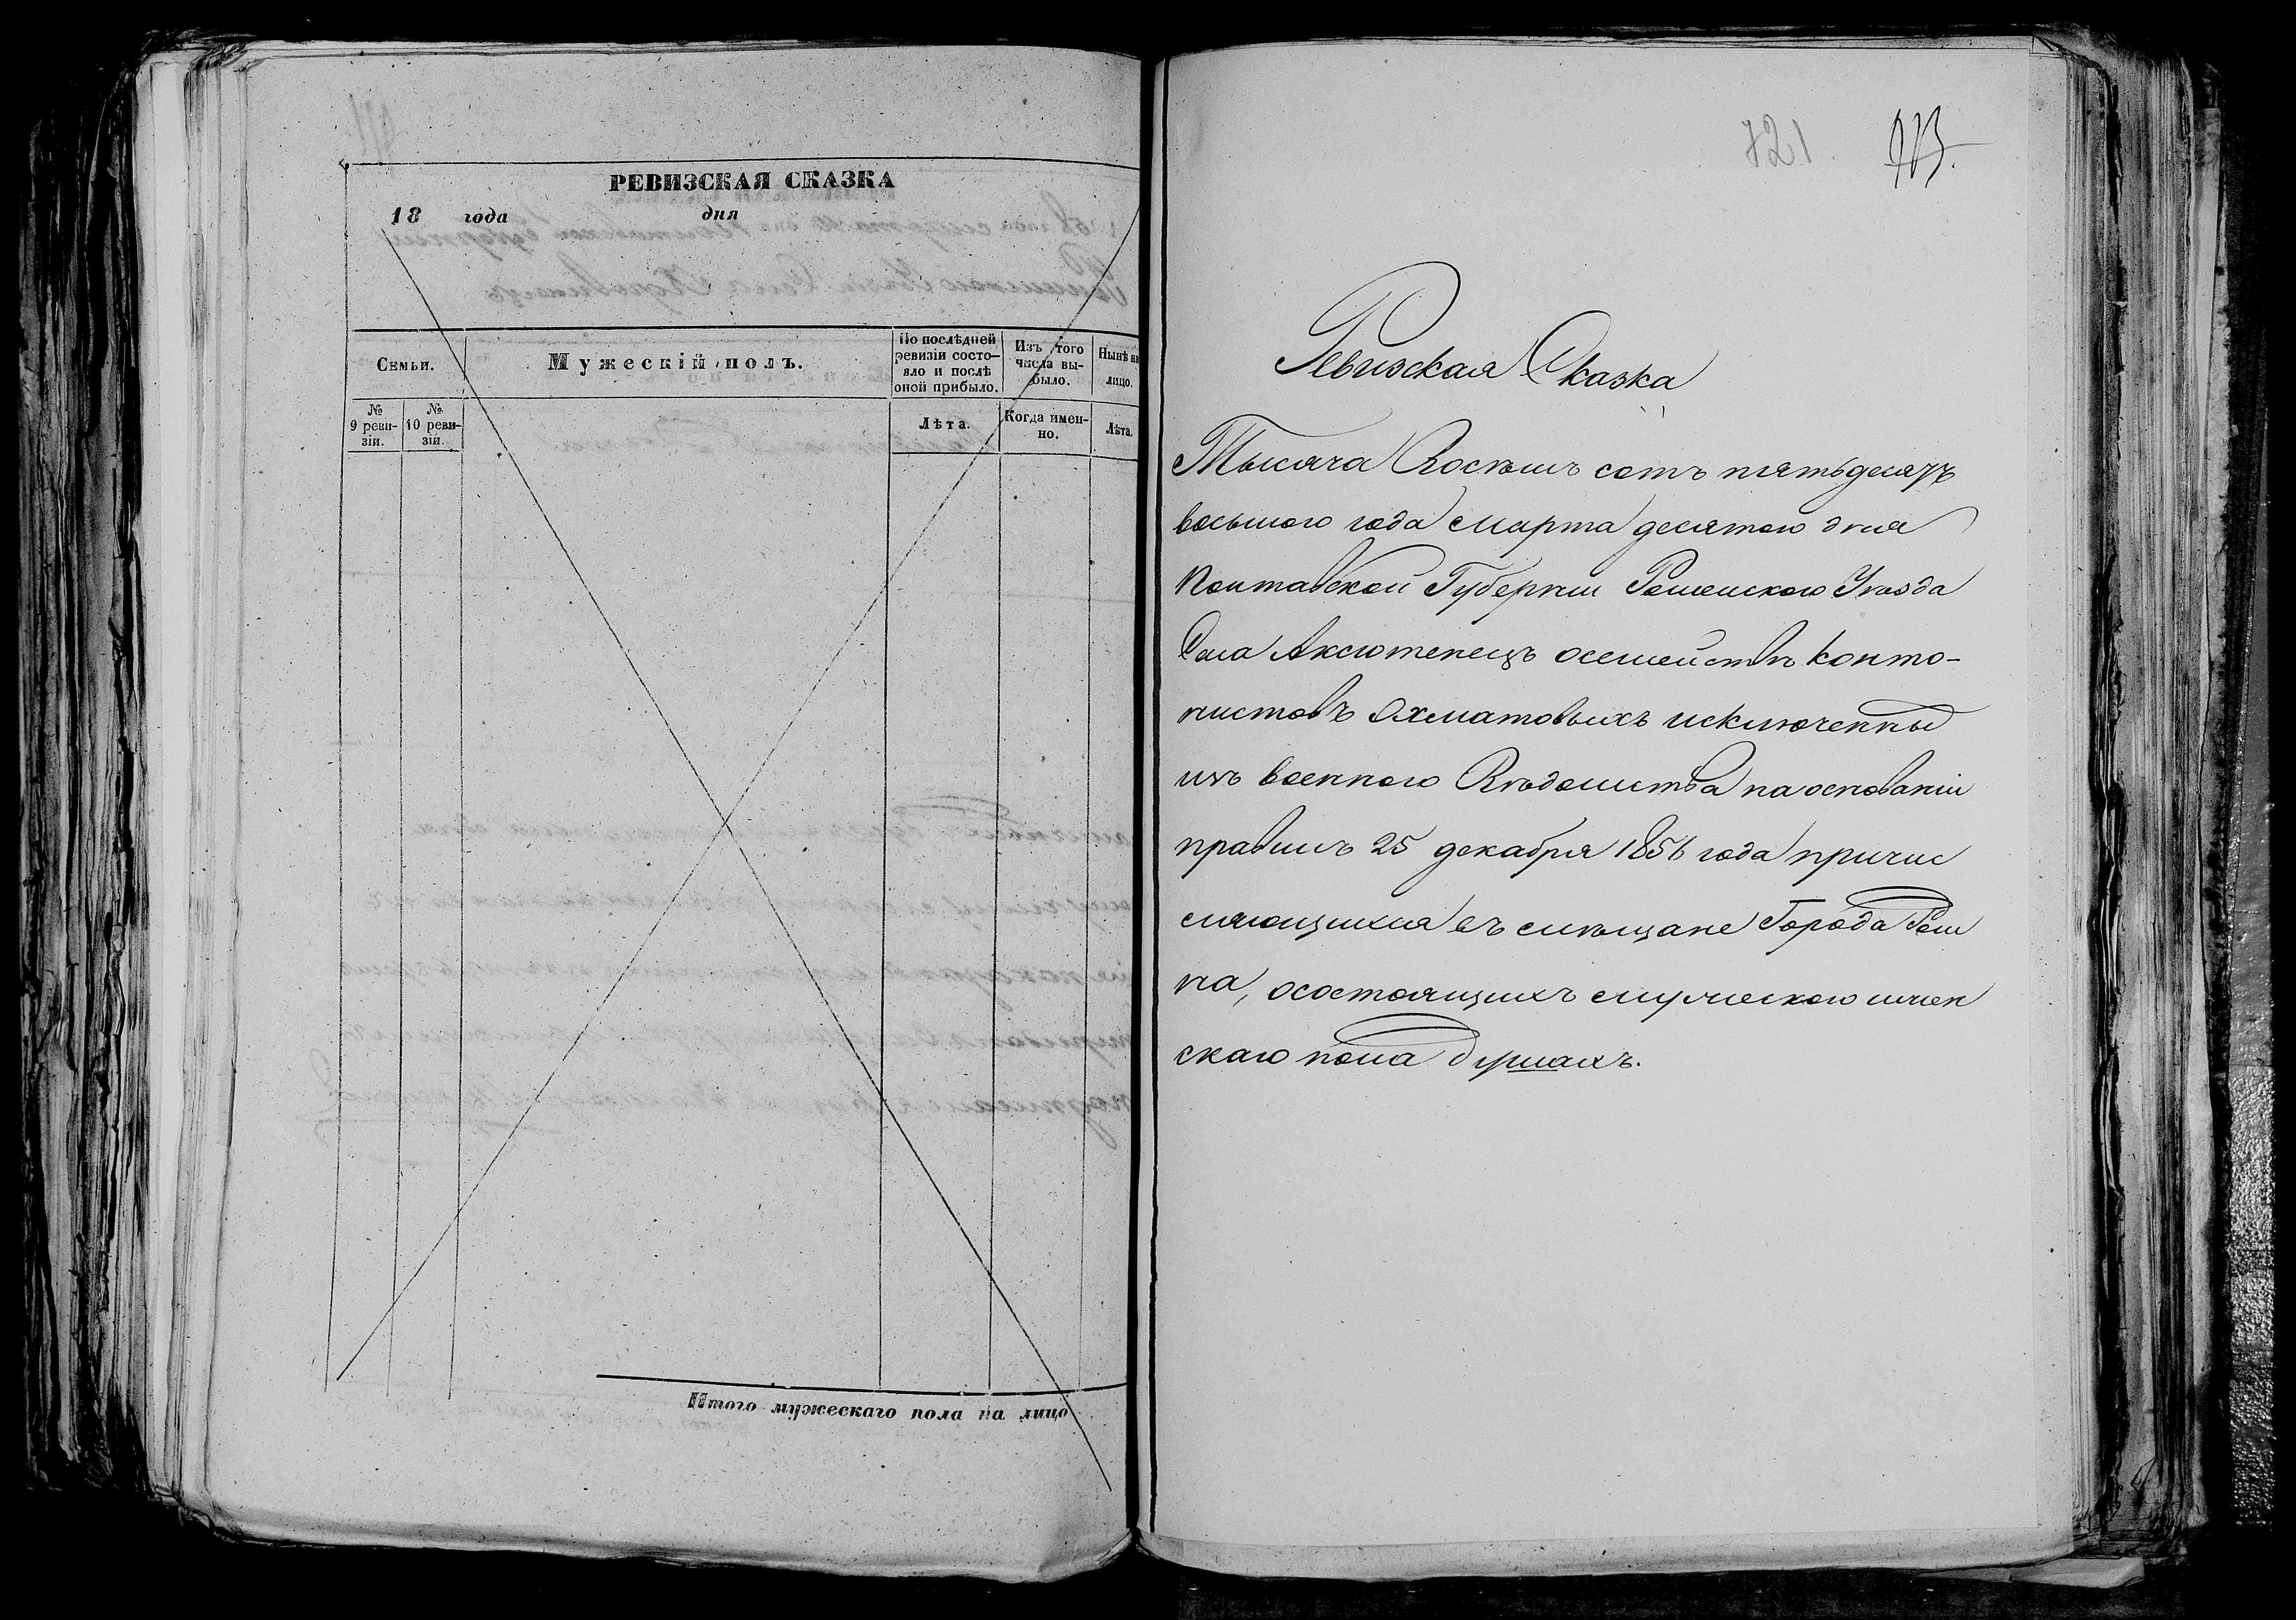 РЕВИЗСКАЯ СКАЗКА
18 года дня
Семьи.
Мужескій полъ.
По послѣдней ревизіи состо-
яло и послѣ
оной прибыло.
Изъ того
числа вы-
было.
Нынѣ на
лицо.
№
9 реви-
зіи.
№
10 реви-
зіи.
Лѣта.
Когда имен-
но.
Лѣта.
Итого мужескаго пола на лицо
721.
Ревизская Сказка
Тысяча Восѣмъ сотъ пятьдесятъ
восьмого года Марта десятого дня
Полтавской Губерніи Роменского Уѣзда
Села Аксютенецъ осемействѣ Канто-
нистовъ Охматовыхъ исключенны
ихъ военного Вѣдомства на основаніи
правилъ 25 декабря 1856 года причис
сляющихся въ мѣщане Города Ром
на, осостоящихъ мужеского ижен
скаго пола душахъ.